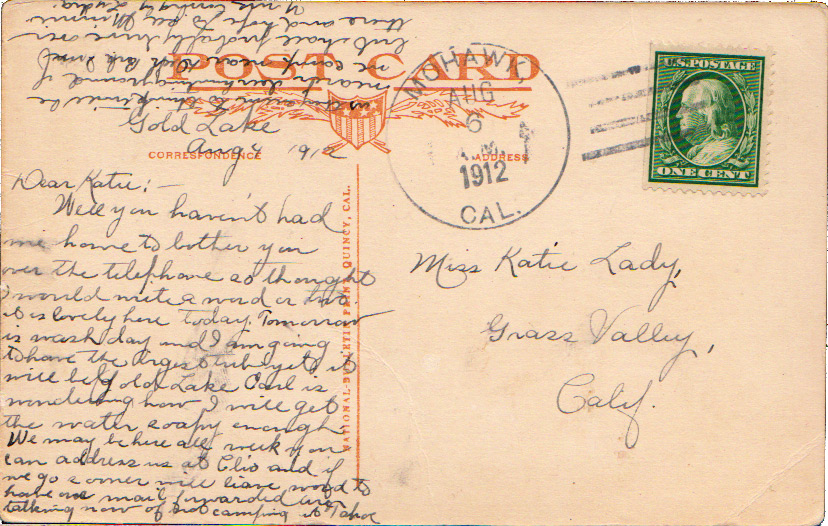 POST CARD
CORRESPONDENCE
ADDRESS
MOHAWK,
AUG
6
A.M.
1912
CAL.
U.S. POSTAGE
ONE CENT
NATIONAL-BULLETIN PRINT, QUINCY, CAL.
Gold Lake
Aug 4 1912
Dear Katie:-
Well you haven't had
me home to bother you
over the telephone so thought
I would write a word or two.
it is lovely here today. Tomorrow
is wash day and I am going
to have the largest tub yet, it
will be Gold Lake Carl is
wondering how I will get
the water soapy enough
We may be here all week you
can address us at Clio and if
we go sooner will leave word to
have our mail forwarded. are
talking now of camping at Tahoe
in
nearly
we camp near
but shall probably drive over
there and hope to see
Miss Katie Lady,
Grass Valley,
Calif.